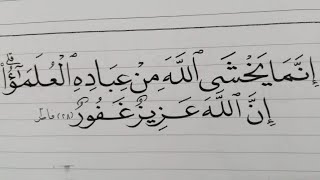 إِنَّمَا يَخْشَى ٱللَّهَ مِنْ عِبَادِهِ ٱلْعُلَمَٰٓؤُا۟ ۗ
إِنَّ ٱللَّهَ عَزِيزٌ غَفُورٌ (٢٨) فاطر